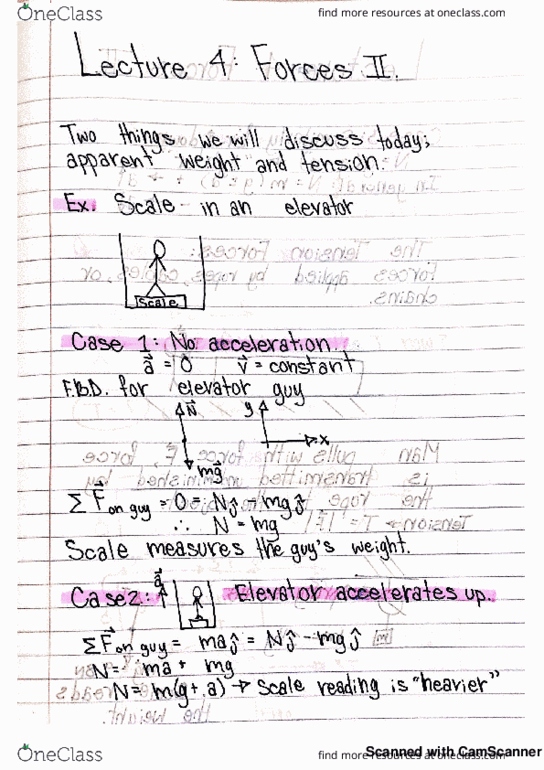 OneClass
find more resources at oneclass.com
Lecture 4: Forces II.
Two things we will discuss today;
apparent weight and tension.
Ex. Scale in an elevator
Scale
Case 1: No acceleration.
a⃗ = 0⃗ v⃗ = constant
F.B.D. for elevator guy
N⃗ y x
mg⃗
ΣF⃗ on guy = 0 = Nĵ - mgĵ
∴ N = mg
Scale measures the guy's weight.
Case 2: a⃗ Elevator accelerates up.
ΣF⃗ on guy = maĵ = Nĵ - mgĵ
N = ma + mg
N = m(g + a) → Scale reading is "heavier"
OneClass
find more resources at oneclass.com
Scanned with CamScanner